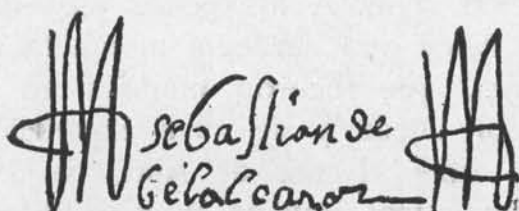 sebastian de
belalcazar